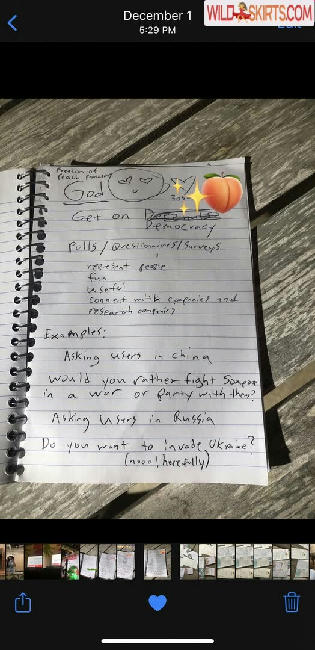 December 1
5:29 PM
WILDSKIRTS.COM
Freedom of
Peace
God
Get on
Democracy
Pulls / Questionnaires / Surveys
represent people
fun
useful
connect with companies and
research companies?
Examples:
Asking users in china
Would you rather fight someone
in a war or party with them?
Asking Users in Russia
Do you want to invade Ukraine?
(nooo! hopefully)